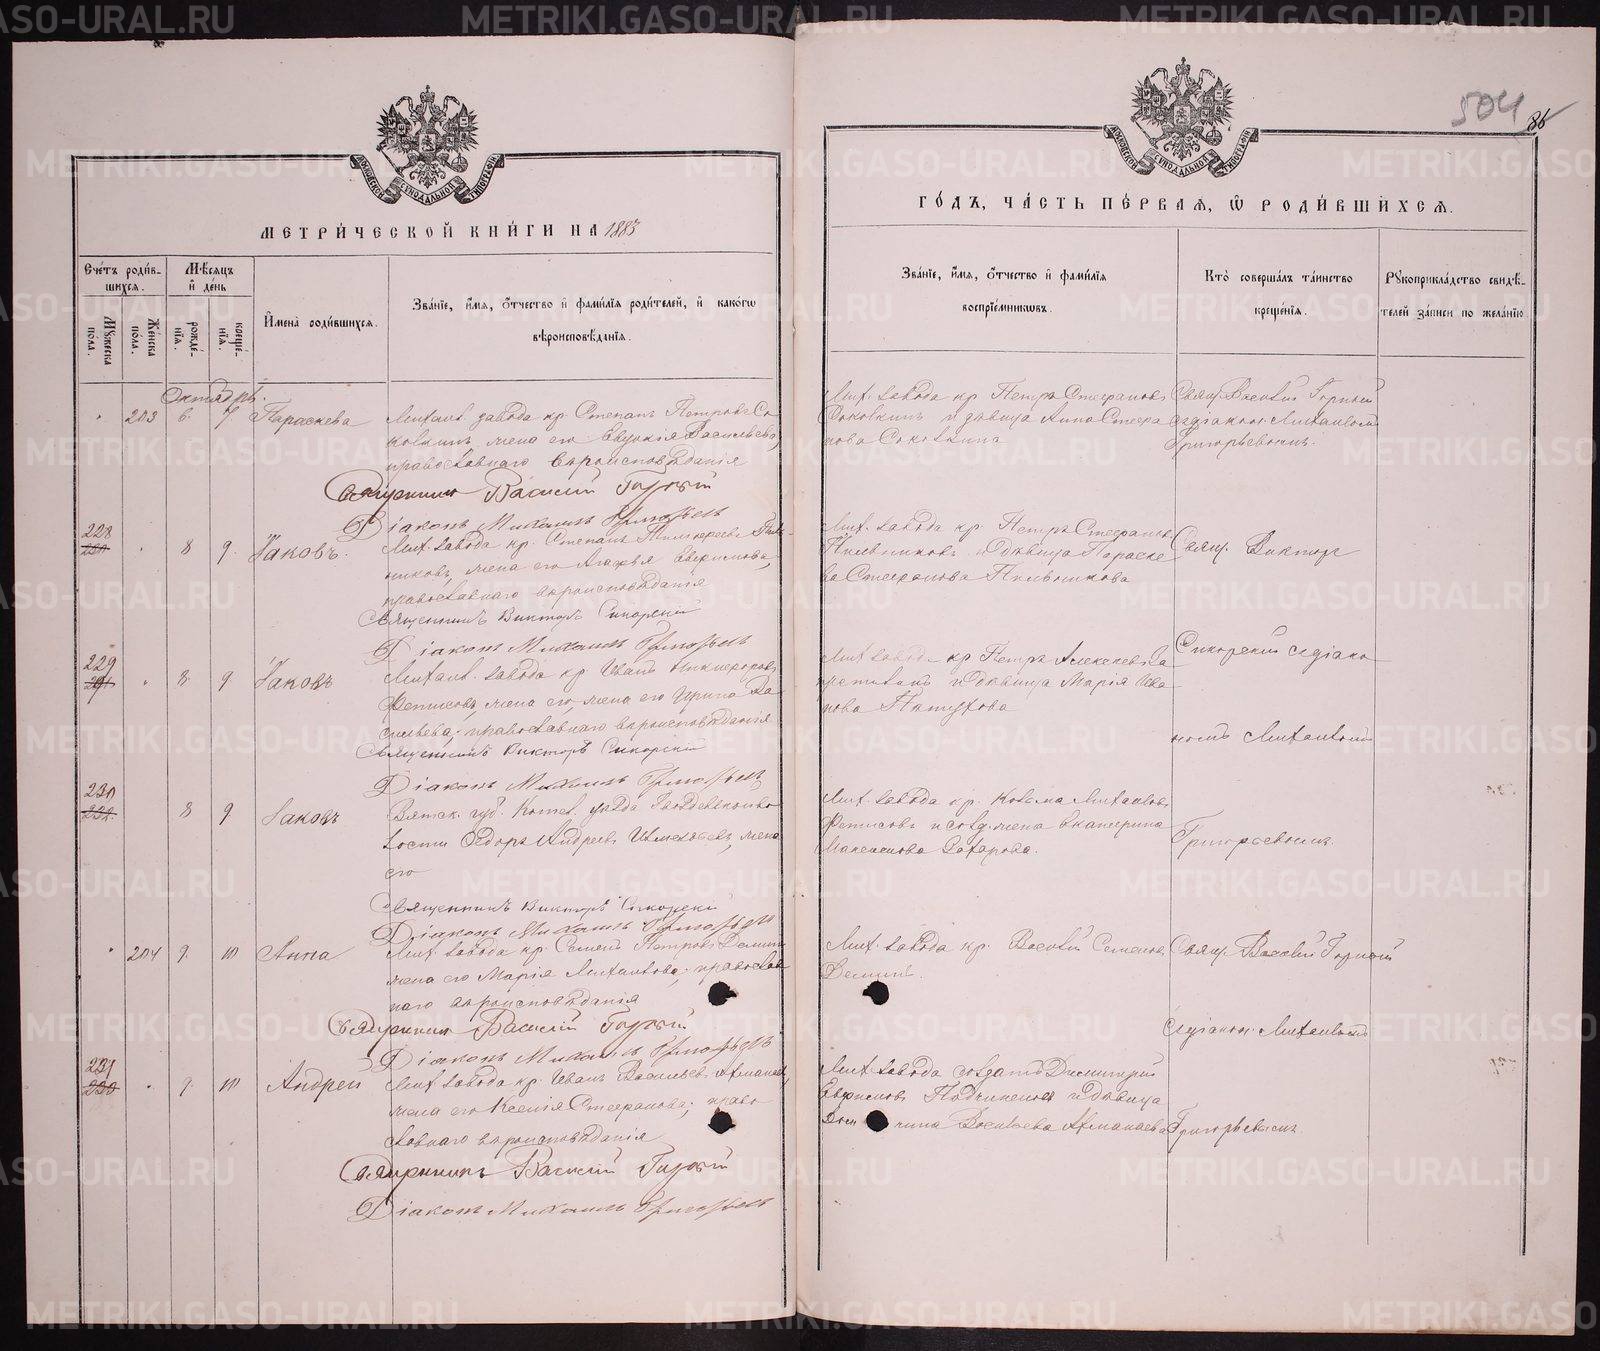 504
86
МОСКОВСКОЙ СѴНОДАЛЬНОЙ ТИПОГРАФІИ
МОСКОВСКОЙ СѴНОДАЛЬНОЙ ТИПОГРАФІИ
МЕТРИ́ЧЕСКОЙ КНИ́ГИ НА 1883
ГО́ДЪ, ЧА́СТЬ ПЕ́РВАЯ, Ѡ҆ РОДИ́ВШИХСЯ.
Сче́тъ роди́в-
шихся.
Му́жеска
по́ла.
Же́нска
по́ла.
Мѣ́сяцъ
и҆ де́нь
рожде́-
нія.
креще́-
нія.
И҆мена̀ роди́вшихся.
Зва́ніе, и҆́мя, ѻ҆́тчество и҆ фами́лія роди́телей, и҆ како́гѡ
вѣроисповѣ́данія.
Зва́ніе, и҆́мя, ѻ҆́тчество и҆ фами́лія
воспріе́мниковъ.
Кто̀ соверша́лъ та́инство
креще́нія.
Рꙋкоприкла́дство свидѣ́-
телей за́писи по жела́нію
Октябрь.
203 6. 7 Параскева
Михаил. завода кр. Степанъ Петровъ Со
ковкинъ, жена его Евдокія Васильева,
православнаго вѣроисповѣданія
Священникъ Василій Горный
Діаконъ Михаилъ Григорьевъ
Мих. завода кр. Петръ Стефановъ
Соковкинъ и дѣвица Анна Стефа
нова Соковкина
Свящ. Василій Горный
съ діакон. Михаиломъ
Григорьевымъ.
228
8 9. Іаковъ.
Мих. завода кр. Степанъ
жена его Агафья Евфимова,
православнаго вѣроисповѣданія
Священникъ Викторъ Сикорскій
Діаконъ Михаилъ Григорьевъ
Мих. завода кр. Петръ Стефановъ
и дѣвица Параске
ва Стефанова
Свящ. Викторъ
229
8. 9 Іаковъ
Михаил. завода кр. Иванъ Никифоровъ
Фетисовъ, жена его, жена его Ирина Ва
сильева, православнаго вѣроисповѣданія
Священникъ Викторъ Сикорскій
Діаконъ Михаилъ Григорьевъ
Мих. завода кр Петръ Алексѣевъ
и дѣвица Марія Ива
нова Пятухова
Сикорскій съ діако
номъ Михаиломъ
230
232.
8 9 Іаковъ
Вятск. губ. Котел. уѣзда во
лости Ѳедоръ Андреевъ жена
его
Священникъ Викторъ Сикорскій
Діаконъ Михаилъ Григорьевъ
Мих. завода кр. Козьма Михаиловъ
Фетисовъ и солд. жена Екатерина
Максимова Захарова.
Григорьевымъ.
204 9. 10 Анна
Мих. завода кр. Семенъ Петровъ Деминъ
жена его Марія Михаилова, православ
наго вѣроисповѣданія
Священникъ Василій Горный
Діаконъ Михаилъ Григорьевъ
Мих. завода кр. Василій Семеновъ
Деминъ.
Свящ. Василій Горный
съ діакон. Михаиломъ
231
9. 10 Андрей
Мих. завода кр. Иванъ Васильевъ
жена его Ксенія Стефанова; право
славнаго вѣроисповѣданія
Священникъ Василій Горный
Діаконъ Михаилъ Григорьевъ
Мих. завода солдатъ Димитрій
Евфимовъ и дѣвица
Васильева
Григорьевымъ
METRIKI.GASO-URAL.RU